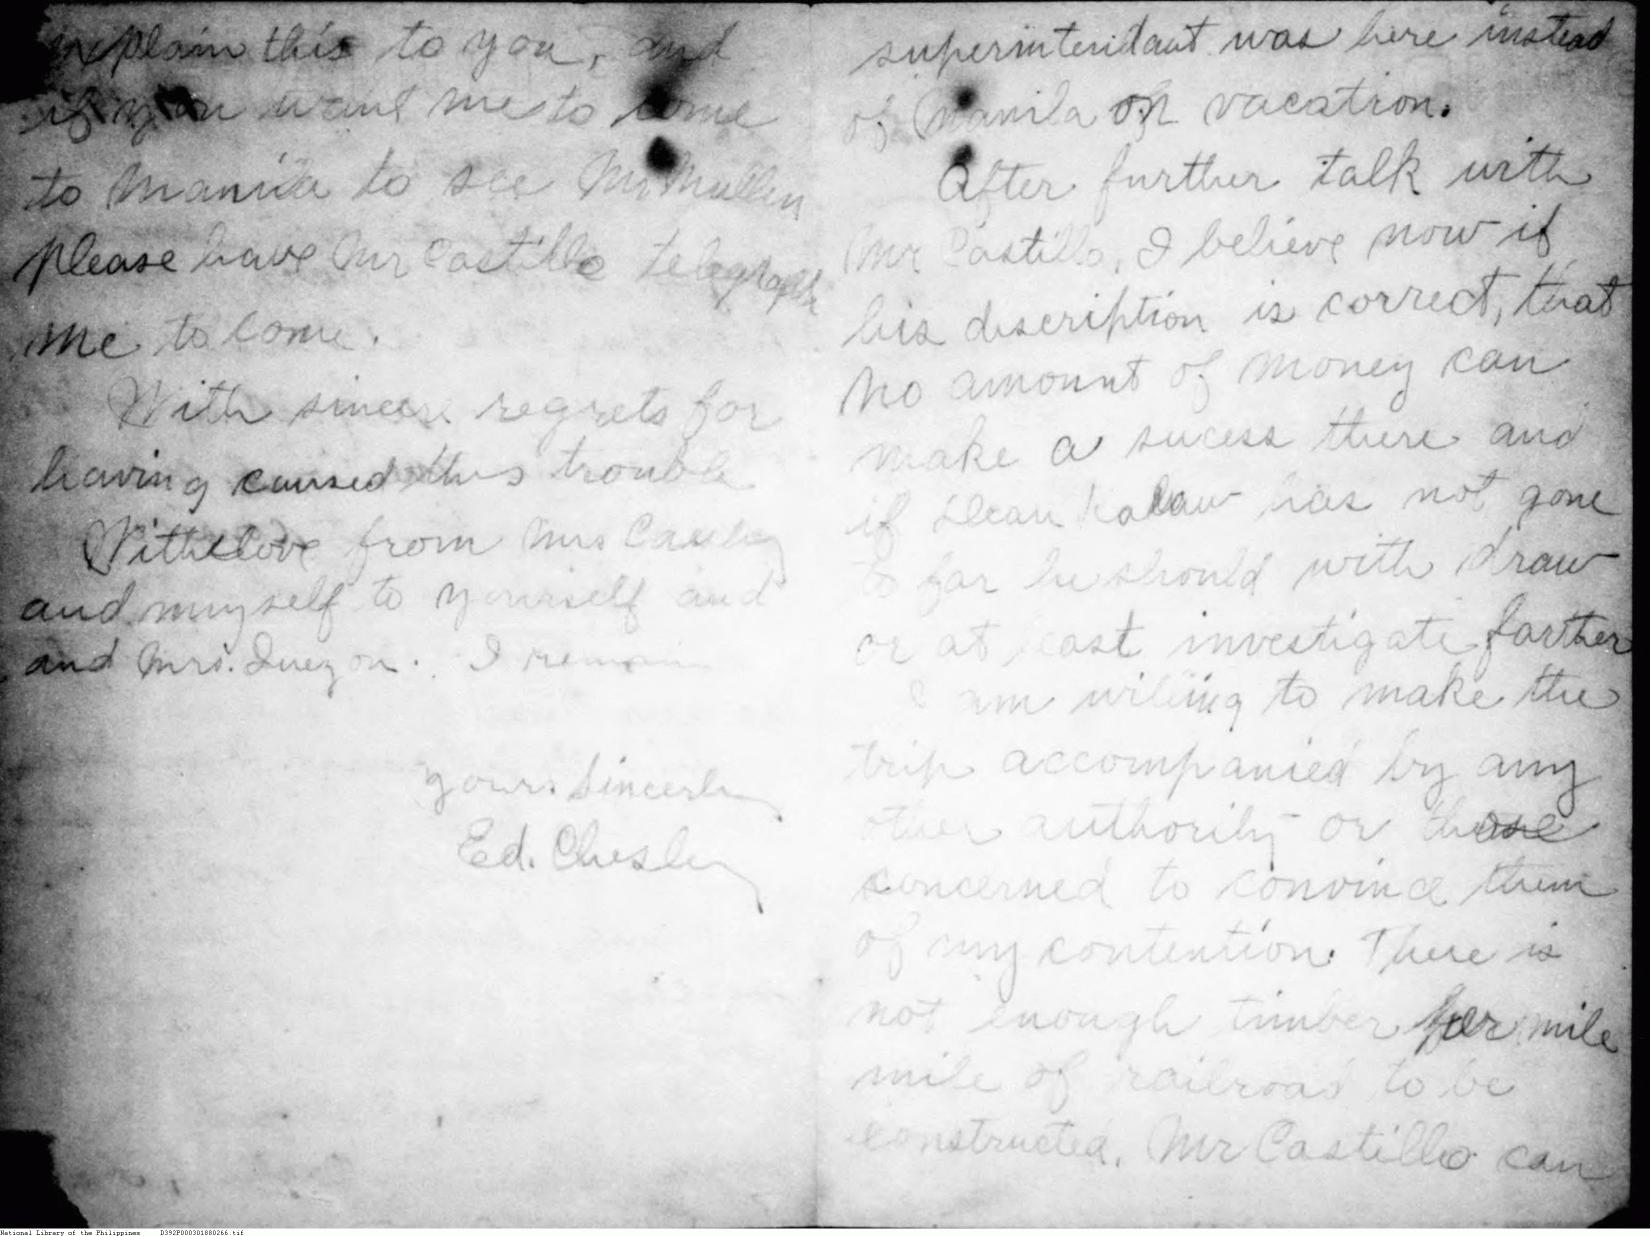 explain this to you, and
if you want me to come
to Manila to see Mr Mullen
please have Mr Castillo telegraph
me to come.
With sincere regrets for
having caused this trouble
With love from Mrs
and myself to yourself and
and Mrs. Quezon. I remain
yours Sincerly
Ed. Chesley
superintendant was here instead
of Manila on vacation.
After further talk with
Mr Castillo, I believe now if
his discription is correct, that
no amount of money can
make a sucess there and
if Dean Kalaw has not gone
to far he should with draw
or at least investigate farther
I am willing to make the
trip accompanied by any
other authority or those
concerned to convince them
of my contention. There is
not enough timber per mile
mile of railroad to be
constructed. Mr Castillo can
National Library of the Philippines D392P000301880266.tif